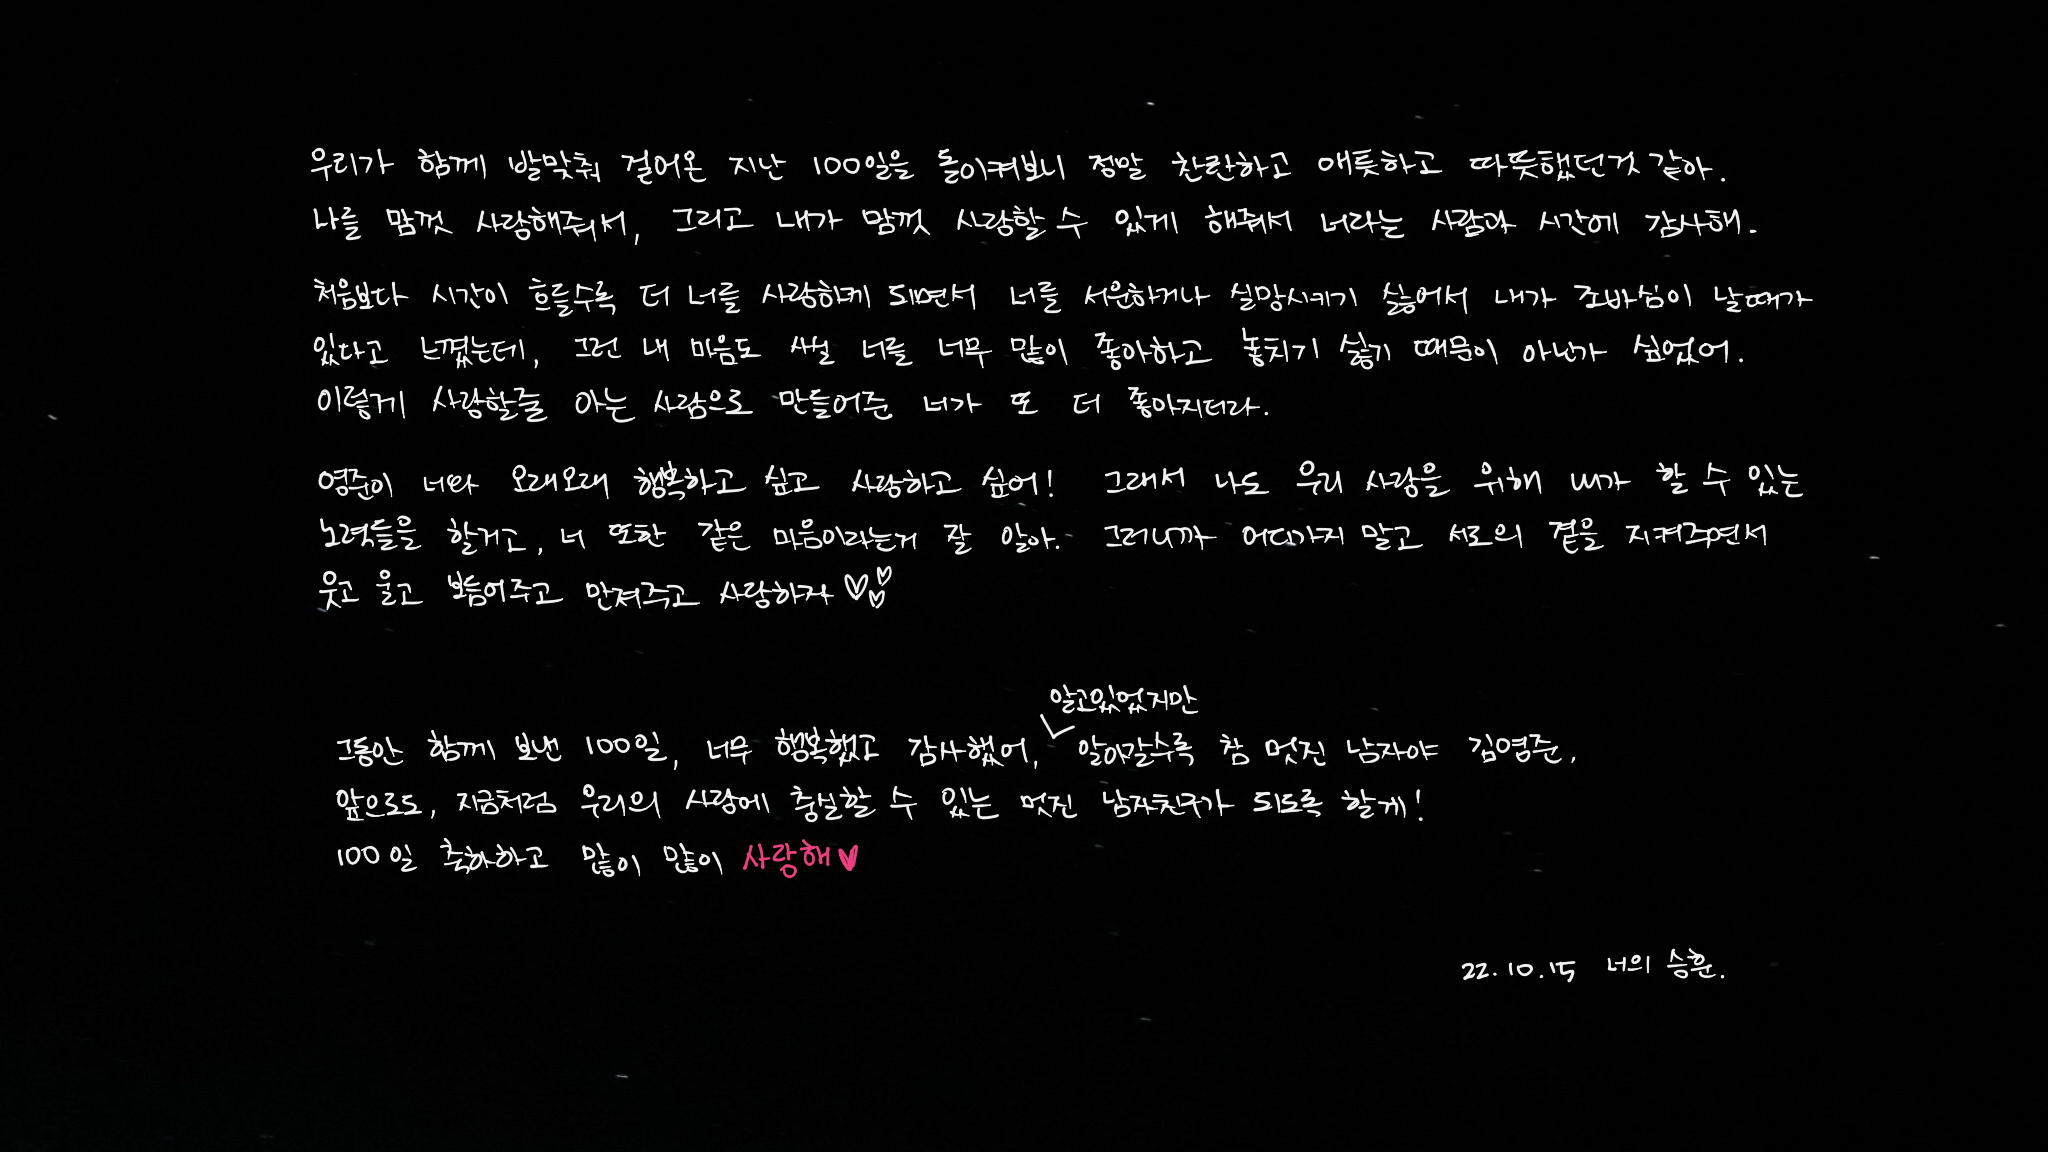 우리가 함께 발맞춰 걸어온 지난 100일을 돌이켜보니 정말 찬란하고 애틋하고 따뜻했던것 같아.
나를 맘껏 사랑해줘서, 그리고 내가 맘껏 사랑할 수 있게 해줘서 너라는 사람과 시간에 감사해.
처음보다 시간이 흐를수록 더 너를 사랑하게 되면서 너를 서운하거나 실망시키기 싫어서 내가 조바심이 날때가
있다고 느꼈는데, 그런 내 마음도 사실 너를 너무 많이 좋아하고 놓치기 싫기 때문이 아닌가 싶었어.
이렇게 사랑할줄 아는 사람으로 만들어준 너가 또 더 좋아지더라.
영준이 너와 오래오래 행복하고 싶고 사랑하고 싶어! 그래서 나도 우리 사랑을 위해 내가 할 수 있는
노력들을 할거고, 너 또한 같은 마음이라는거 잘 알아. 그러니까 어디가지 말고 서로의 곁을 지켜주면서
웃고 울고 보듬어주고 만져주고 사랑하자 ♡♡♡
알고있었지만
그동안 함께 보낸 100일, 너무 행복했고 감사했어, 알아갈수록 참 멋진 남자야 김영준.
앞으로도, 지금처럼 우리의 사랑에 충실할 수 있는 멋진 남자친구가 되도록 할게!
100일 축하하고 많이 많이 사랑해♥
22.10.15 너의 승훈.